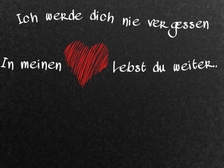 Ich werde dich nie vergessen
In meinen Lebst du weiter..